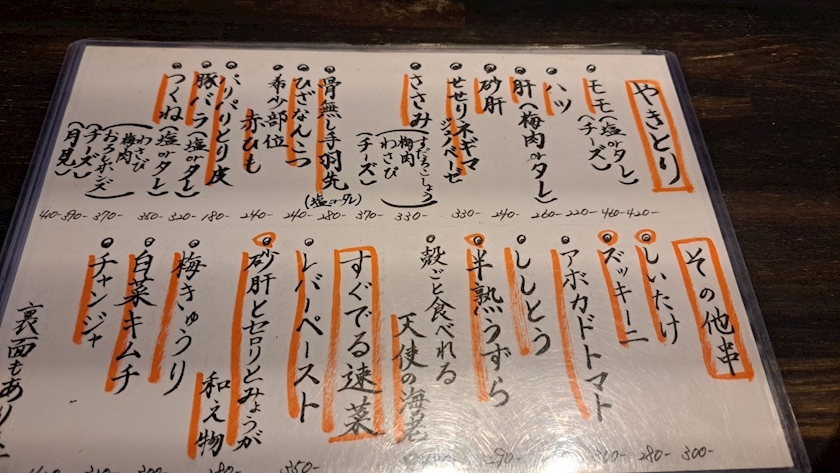 やきとり
モモ(塩orタレ)
(チーズ)
ハツ
肝(梅肉orタレ)
砂肝
せせりネギマ
ジェノベーゼ
ささみ
(すだちこしょう
梅肉
わさび
(チーズ)
骨無し手羽先
(塩orタレ)
ひざなんこつ
希少部位
赤ひも
パリパリとり皮
豚バラ(塩orタレ)
つくね(塩orタレ)
(わさび
梅肉
おろしポンズ)
(チーズ)
(月見)
420-
460-
220-
260-
240-
330-
330-
370-
280-
240-
240-
180-
320-
350-
370-
390-
410-
その他串
しいたけ
ズッキーニ
アボカドトマト
ししとう
半熟うずら
殻ごと食べれる
天使の海老
すぐでる速菜
レバーペースト
砂肝とセロリとみょうが
和え物
梅きゅうり
白菜キムチ
チャンジャ
裏面もあり
300-
280-
290-
350-